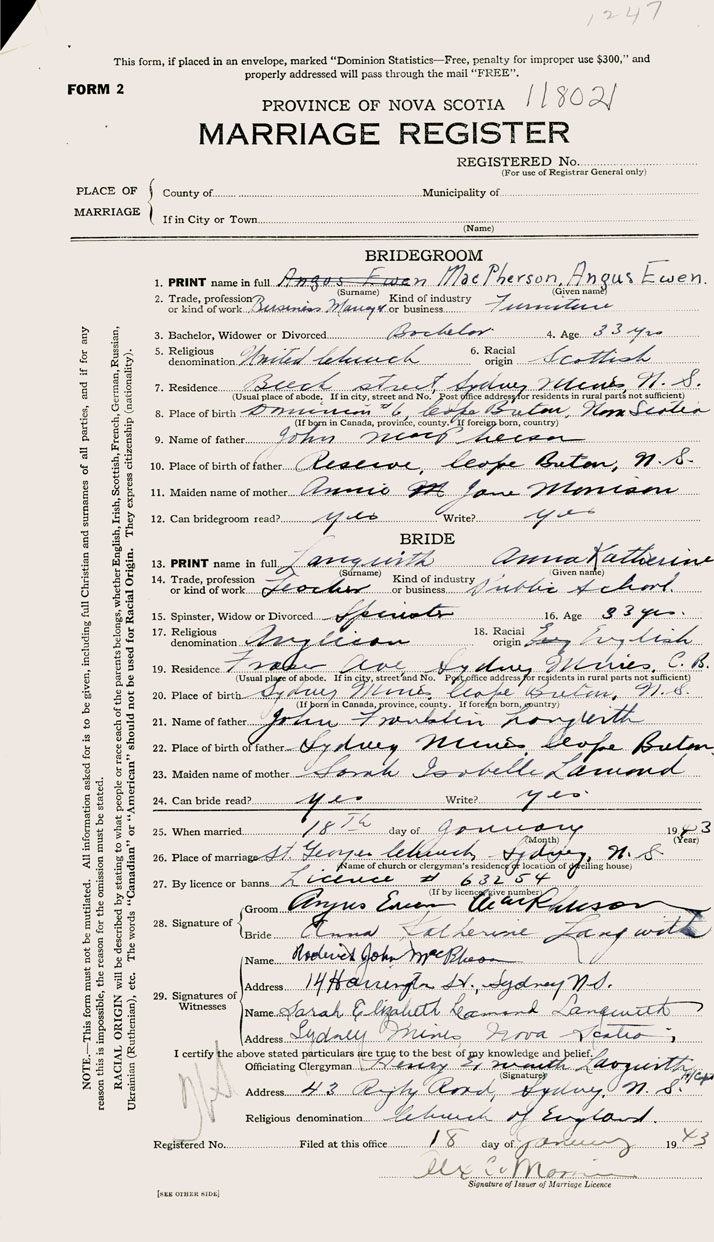 1247
This form, if placed in an envelope, marked "Dominion Statistics—Free, penalty for improper use $300," and
properly addressed will pass through the mail "FREE".
FORM 2
PROVINCE OF NOVA SCOTIA 11802
MARRIAGE REGISTER
REGISTERED No.
(For use of Registrar General only)
PLACE OF MARRIAGE
County of Municipality of
If in City or Town
(Name)
BRIDEGROOM
1. PRINT name in full Angus Ewen MacPherson, Angus Ewen.
(Surname) (Given name)
2. Trade, profession or kind of work Business Manager Kind of industry or business Furniture
3. Bachelor, Widower or Divorced Bachelor 4. Age 33 yrs
5. Religious denomination United Church 6. Racial origin Scottish
7. Residence Beech street, Sydney Mines, N. S.
(Usual place of abode. If in city, street and No. Post office address for residents in rural parts not sufficient)
8. Place of birth Dominion #6, Cape Breton, Nova Scotia
(If born in Canada, province, county. If foreign born, country)
9. Name of father John MacPherson
10. Place of birth of father Reserve, Cape Breton, N. S.
11. Maiden name of mother Annie M Jane Morrison
12. Can bridegroom read? yes Write? yes
BRIDE
13. PRINT name in full Langwith Anna Katherine
(Surname) (Given name)
14. Trade, profession or kind of work Teacher Kind of industry or business Public School.
15. Spinster, Widow or Divorced Spinster 16. Age 33 yrs.
17. Religious denomination Anglican 18. Racial origin Eng English
19. Residence Fraser Ave Sydney Mines, C. B.
(Usual place of abode. If in city, street and No. Post office address for residents in rural parts not sufficient)
20. Place of birth Sydney Mines Cape Breton, N. S.
(If born in Canada, province, county. If foreign born, country)
21. Name of father John Franklin Langwith
22. Place of birth of father Sydney Mines, Cape Breton,
23. Maiden name of mother Sarah Isabelle Lamond
24. Can bride read? yes Write? yes
25. When married 18th day of January 1943
(Month) (Year)
26. Place of marriage St. Georges Church - Sydney, N. S
(Name of church or clergyman's residence or location of dwelling house)
27. By licence or banns Licence # 63254
(If by licence give number)
28. Signature of
Groom Angus Ewen MacPherson
Bride Anna Katherine Langwith
29. Signatures of Witnesses
Name Roderick John MacPherson
Address 14 Harrington St., Sydney N.S.
Name Sarah Elizabeth Lamond Langwith
Address Sydney Mines Nova Scotia
I certify the above stated particulars are true to the best of my knowledge and belief.
Officiating Clergyman Henry Langwith
(Signature)
Address 43 Rigby Road, Sydney, N. S.
Religious denomination Church of England.
Registered No. Filed at this office 18 day of January 1943
Signature of Issuer of Marriage Licence
[SEE OTHER SIDE]
NOTE.—This form must not be mutilated. All information asked for is to be given, including full Christian and surnames of all parties, and if for any
reason this is impossible, the reason for the omission must be stated.
RACIAL ORIGIN will be described by stating to what people or race each of the parents belongs, whether English, Irish, Scottish, French, German, Russian,
Ukrainian (Ruthenian), etc. The words "Canadian" or "American" should not be used for Racial Origin. They express citizenship (nationality).